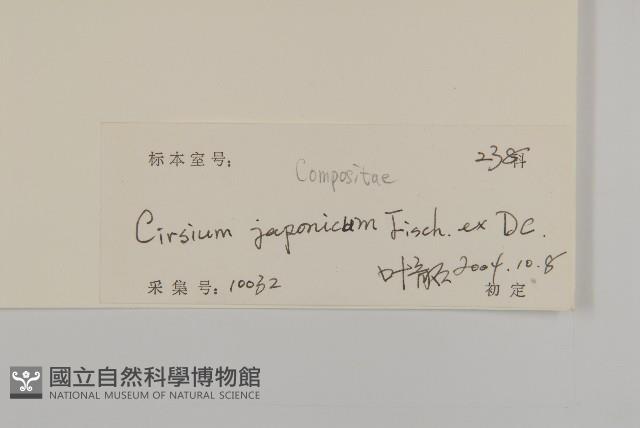 标本室号:
Compositae
238科
Cirsium japonicum Fisch. ex DC.
采集号: 10032
2004.10.8
初定
國立自然科學博物館
NATIONAL MUSEUM OF NATURAL SCIENCE